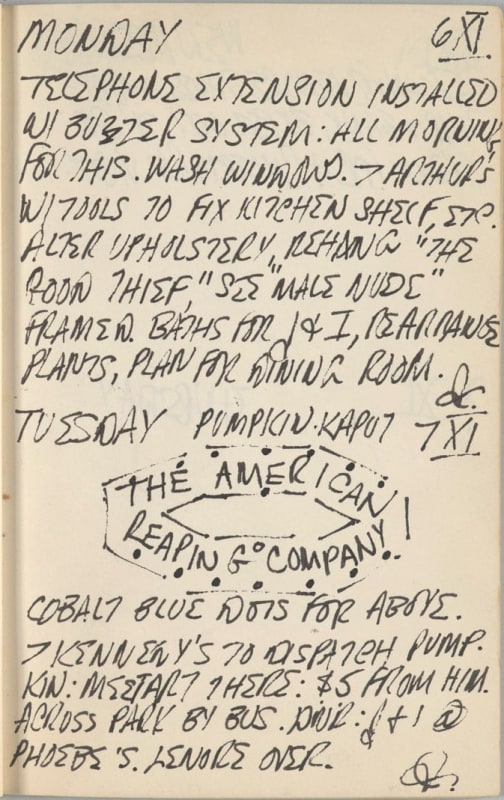 MONDAY 6 XI
TELEPHONE EXTENSION INSTALLED
W/ BUZZER SYSTEM: ALL MORNING
FOR THIS. WASH WINDOWS. → ARTHUR'S
W/ TOOLS TO FIX KITCHEN SHELF, ETC.
ALTER UPHOLSTERY, REHANG "THE
ROOD THIEF," SEE "MALE NUDE"
FRAMED. BATHS FOR J & I, REARRANGE
PLANTS, PLAN FOR DINING ROOM.
TUESDAY PUMPKIN·KAPUT 7 XI
THE AMERICAN
REAPING COMPANY
COBALT BLUE DOTS FOR ABOVE.
→ KENNEDY'S TO DISPATCH PUMP.
KIN: THERE: $5 FROM HIM.
ACROSS PARK BY BUS. DINR: J + I @
PHOEBE'S. LENORE OVER.